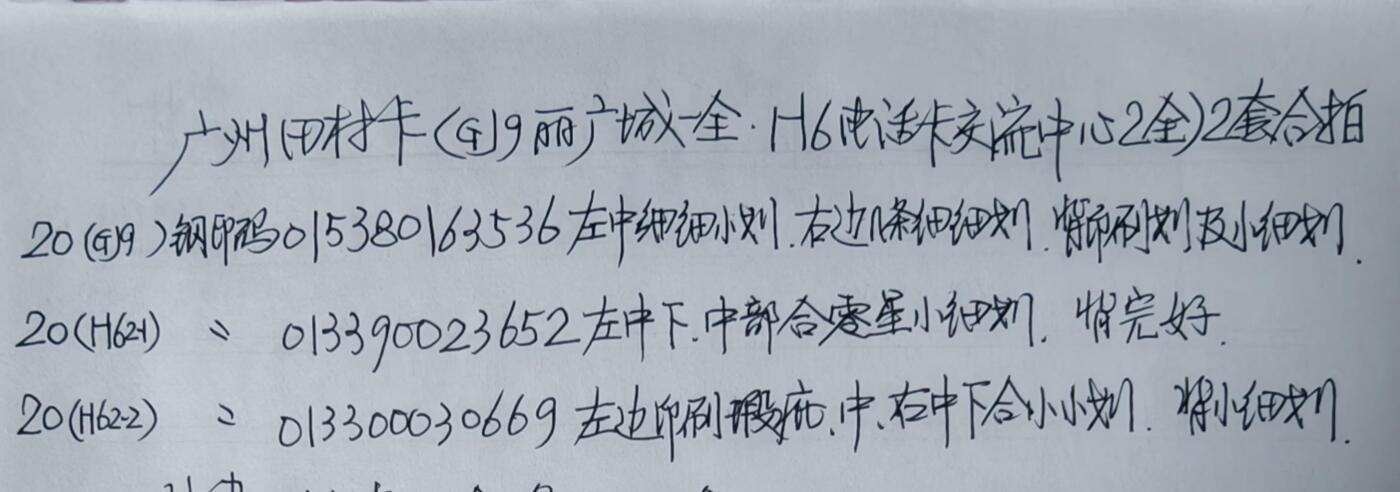 广州田村卡(G19丽广城一全.H6电话卡交流中心2全)2套合拍
20(G19)钢印码015380163536左中细细小划.右边几条细细划.背印刷划及小细划.
20(H62-1) 〃 013390023652左中下.中部合零星小细划.背完好.
20(H62-2) 〃 013300030669左边印刷瑕疵.中.右中下合小小划.背小细划.